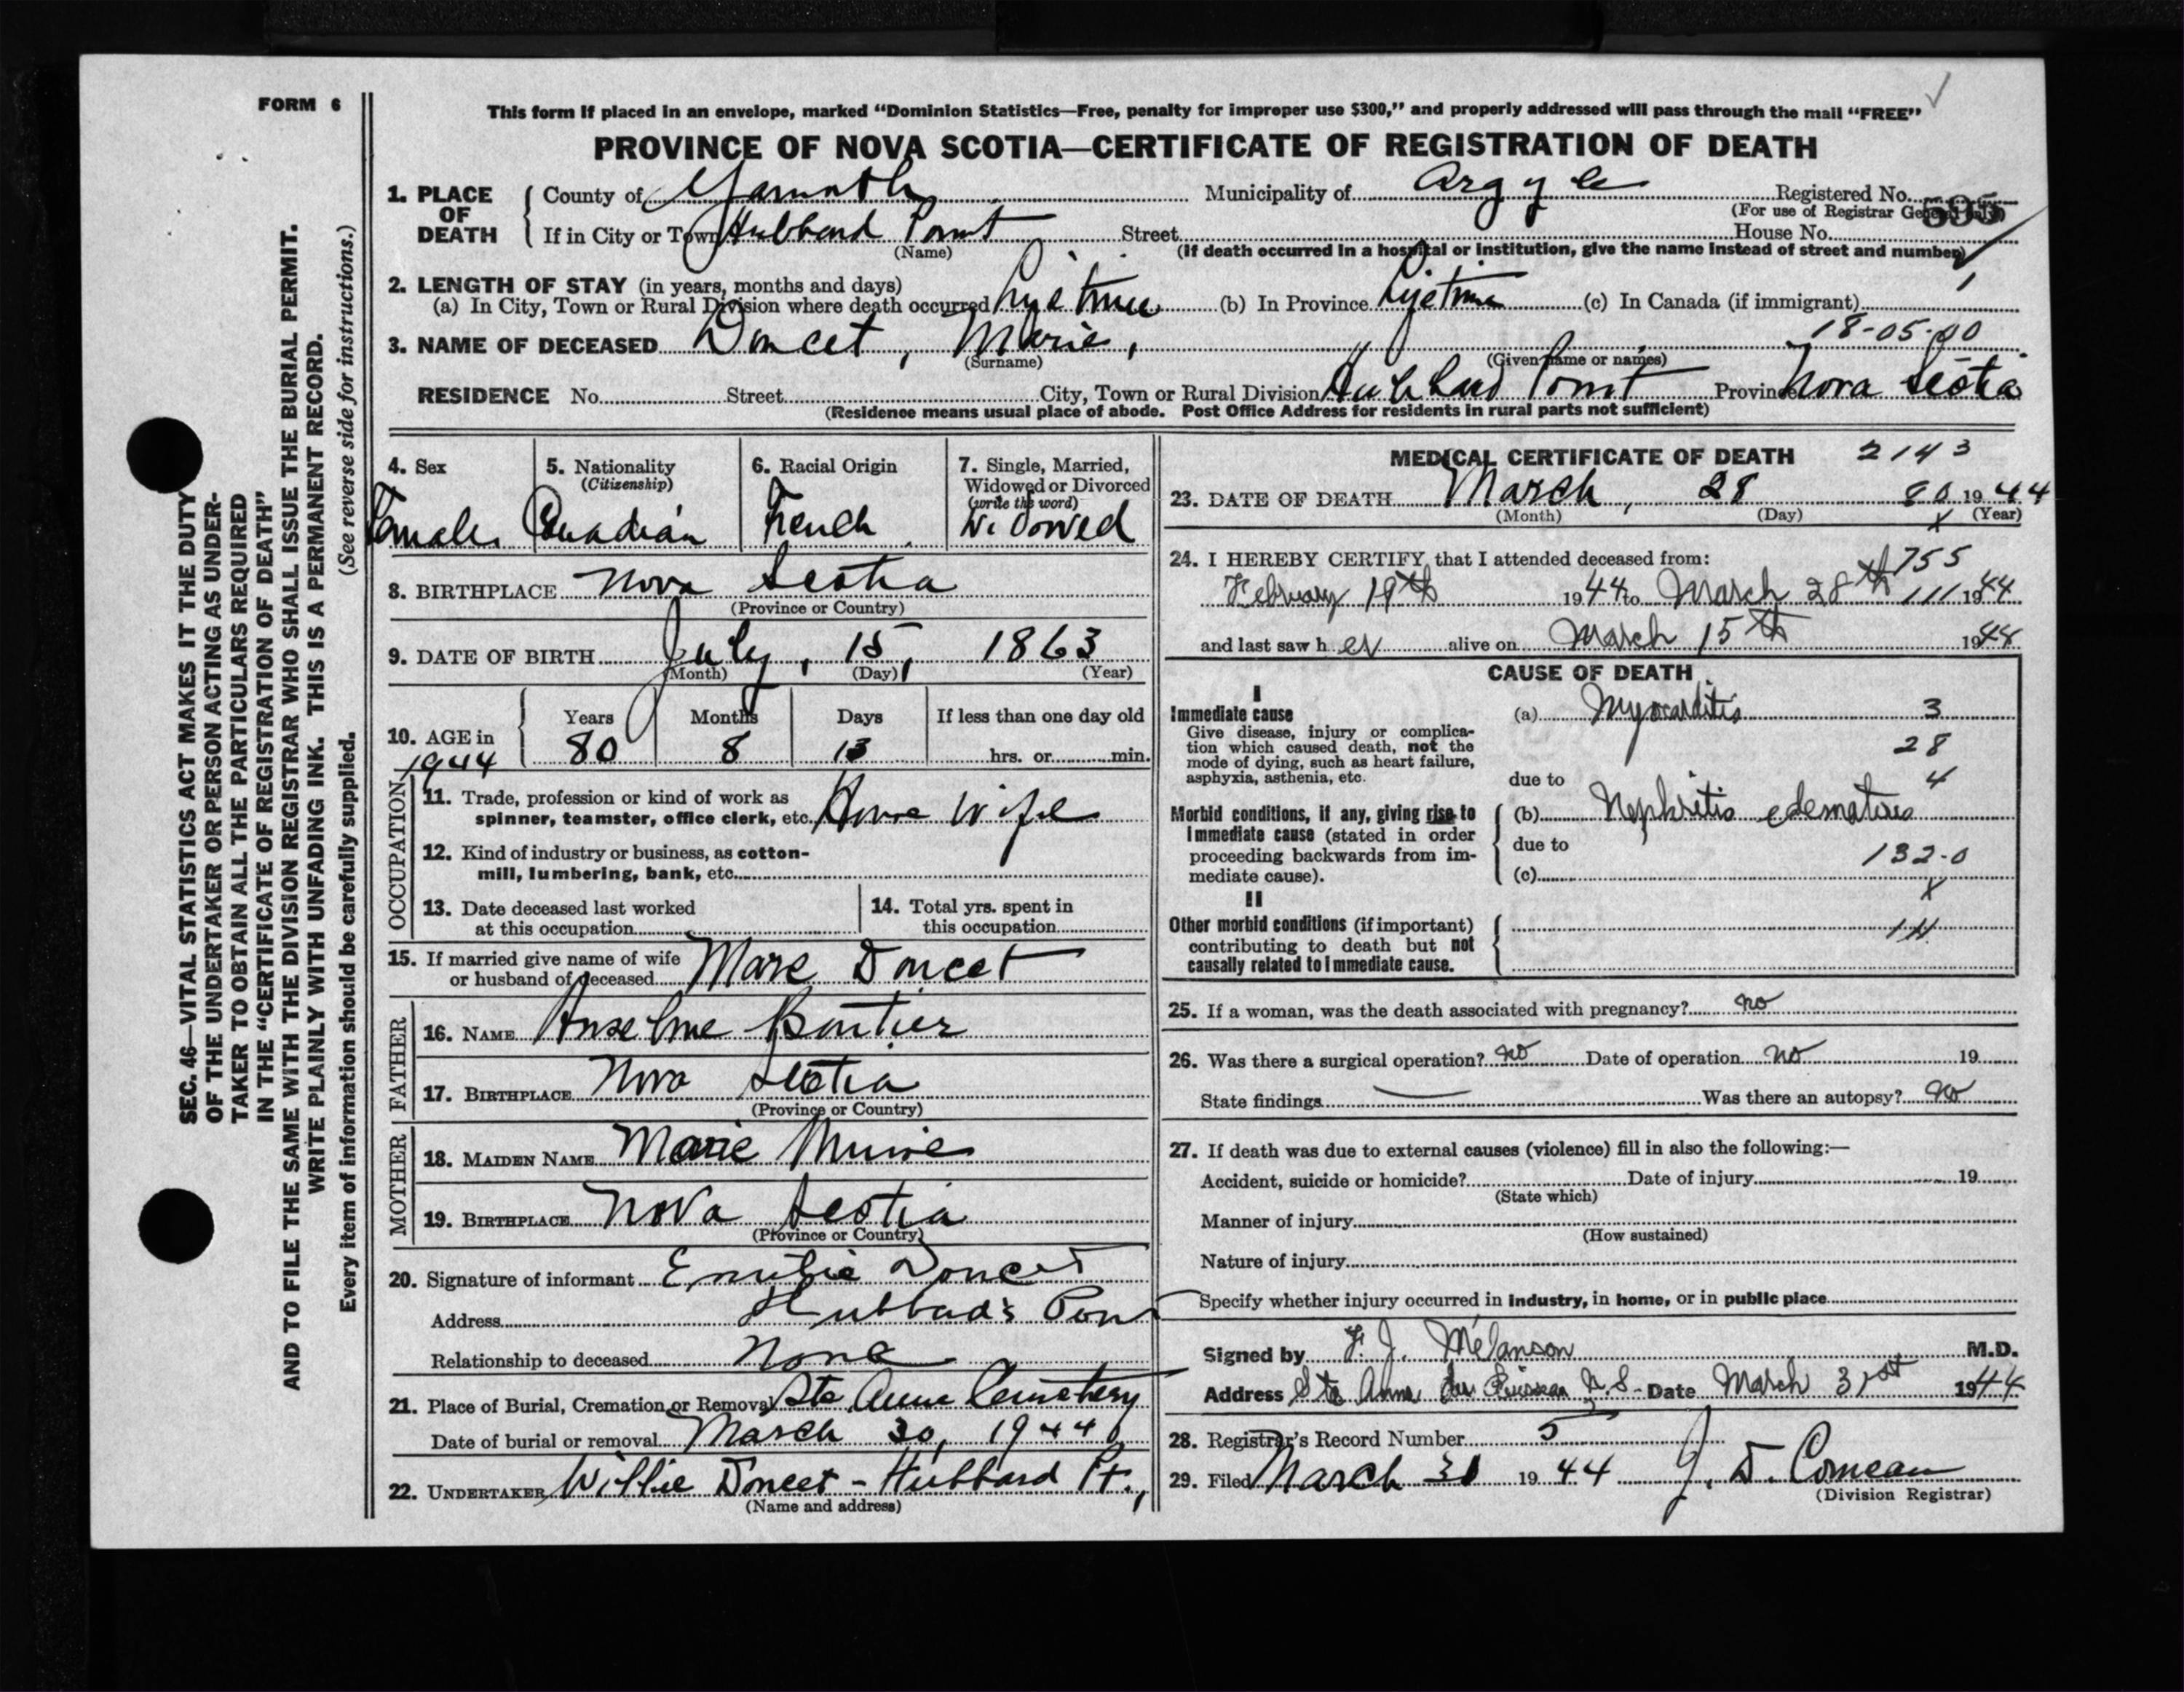 FORM 6
This form if placed in an envelope, marked "Dominion Statistics—Free, penalty for improper use $300," and properly addressed will pass through the mail "FREE"
PROVINCE OF NOVA SCOTIA—CERTIFICATE OF REGISTRATION OF DEATH
1. PLACE OF DEATH County of Yarmouth Municipality of Argyle Registered No. 595
(For use of Registrar General only)
If in City or Town Hubbard Point Street House No.
(Name) (If death occurred in a hospital or institution, give the name instead of street and number)
2. LENGTH OF STAY (in years, months and days)
(a) In City, Town or Rural Division where death occurred Life time (b) In Province Life time (c) In Canada (if immigrant) 1
18-05-00
3. NAME OF DECEASED Doucet, Marie,
(Surname) (Given name or names)
RESIDENCE No. Street City, Town or Rural Division Hubbard Point Province Nova Scotia
(Residence means usual place of abode. Post Office Address for residents in rural parts not sufficient)
4. Sex Female
5. Nationality (Citizenship) Canadian
6. Racial Origin French
7. Single, Married, Widowed or Divorced (write the word) Widowed
8. BIRTHPLACE Nova Scotia
(Province or Country)
9. DATE OF BIRTH July, 15, 1863
(Month) (Day) (Year)
10. AGE in 1944 Years 80 Months 8 Days 13 If less than one day old hrs. or min.
OCCUPATION
11. Trade, profession or kind of work as
spinner, teamster, office clerk, etc. House Wife
12. Kind of industry or business, as cotton-
mill, lumbering, bank, etc.
13. Date deceased last worked
at this occupation
14. Total yrs. spent in
this occupation
15. If married give name of wife
or husband of deceased Marc Doucet
FATHER
16. NAME Anselme Pontier
17. BIRTHPLACE Nova Scotia
(Province or Country)
MOTHER
18. MAIDEN NAME Marie Muise
19. BIRTHPLACE Nova Scotia
(Province or Country)
20. Signature of informant Emilie Doucet
Address Hubbad's Poin
Relationship to deceased None
21. Place of Burial, Cremation or Removal Ste Anne Cemetery
Date of burial or removal March 30, 1944
22. UNDERTAKER Willie Doucet - Hubbard Pt.,
(Name and address)
MEDICAL CERTIFICATE OF DEATH 2143
23. DATE OF DEATH March, 28 80 1944
(Month) (Day) X (Year)
24. I HEREBY CERTIFY that I attended deceased from: 755
February 19th 1944 to March 28th 111 1944
and last saw her alive on March 15th 1944
CAUSE OF DEATH
I
Immediate cause
Give disease, injury or complica-
tion which caused death, not the
mode of dying, such as heart failure,
asphyxia, asthenia, etc.
(a) Myocarditis 3
28
due to 4
Morbid conditions, if any, giving rise to
immediate cause (stated in order
proceeding backwards from im-
mediate cause).
(b) Nephritis edematous
due to
132-0
(c)
X
II
Other morbid conditions (if important)
contributing to death but not
causally related to immediate cause.
111
25. If a woman, was the death associated with pregnancy? no
26. Was there a surgical operation? no Date of operation no 19
State findings — Was there an autopsy? no
27. If death was due to external causes (violence) fill in also the following:—
Accident, suicide or homicide? Date of injury 19
(State which)
Manner of injury
(How sustained)
Nature of injury
Specify whether injury occurred in industry, in home, or in public place
Signed by F. J. Mélanson M.D.
Address Ste Anne du Ruisseau N.S. Date March 31st 1944
28. Registrar's Record Number 5
29. Filed March 31 1944 J. D. Comeau
(Division Registrar)
SEC. 46—VITAL STATISTICS ACT MAKES IT THE DUTY
OF THE UNDERTAKER OR PERSON ACTING AS UNDER-
TAKER TO OBTAIN ALL THE PARTICULARS REQUIRED
IN THE "CERTIFICATE OF REGISTRATION OF DEATH"
AND TO FILE THE SAME WITH THE DIVISION REGISTRAR WHO SHALL ISSUE THE BURIAL PERMIT.
WRITE PLAINLY WITH UNFADING INK. THIS IS A PERMANENT RECORD.
Every item of information should be carefully supplied. (See reverse side for instructions.)